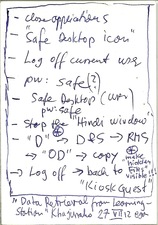 - close applications
- Safe Desktop icon"
- Log off current usr
pw: safe(?)
- Safe Desktop (
pw: safe
- stop "Hindi window"
- "D" → D&S → RHS
→ "OD" → copy
make hidden files visible!!!
- Log off → back to
"Kiosk Guest"
"Data Retrieval from Learning-
Station" Khajuraho 27 VII 12